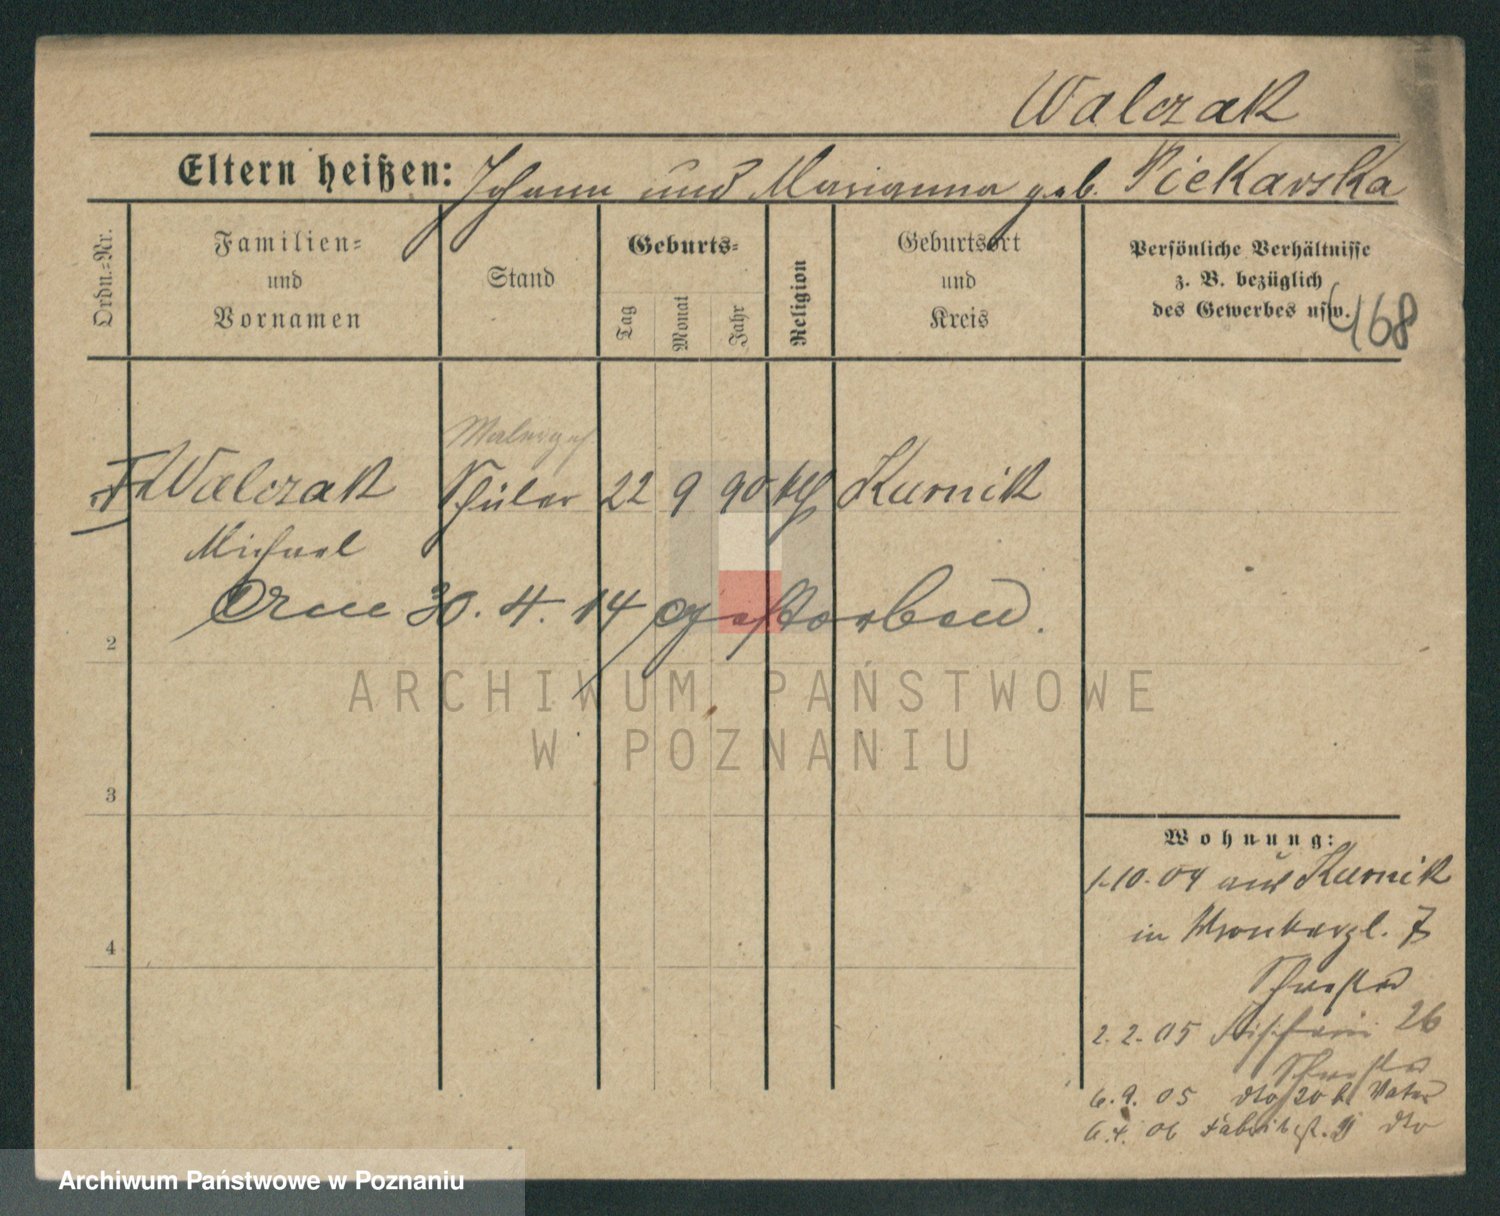 Walczak
Eltern heißen: Johann und Marianna geb. Piekarska
Ordn.=Nr.
Familien=
und
Vornamen
Stand
Geburts=
Tag
Monat
Jahr
Religion
Geburtsort
und
Kreis
Persönliche Verhältnisse
z. B. bezüglich
des Gewerbes usw.
468
Walczak Schüler 22 9 90 kth Kurnik
Michael
Am 30. 4. 14 gestorben.
2
3
4
Wohnung:
1.10.04 aus Kurnik
in Wronkerpl. 7
Schwester
2.2.05 26
Schwester
6.9.05 dto 20 b. Vater
6.4.06 Fabrikst. dto
ARCHIWUM PAŃSTWOWE
W POZNANIU
Archiwum Państwowe w Poznaniu